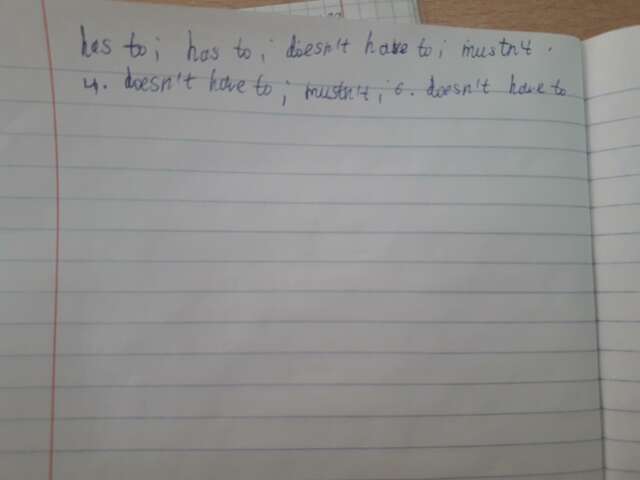 has to; has to; doesn't have to; mustn't.
4. doesn't have to; mustn't; 6. doesn't have to